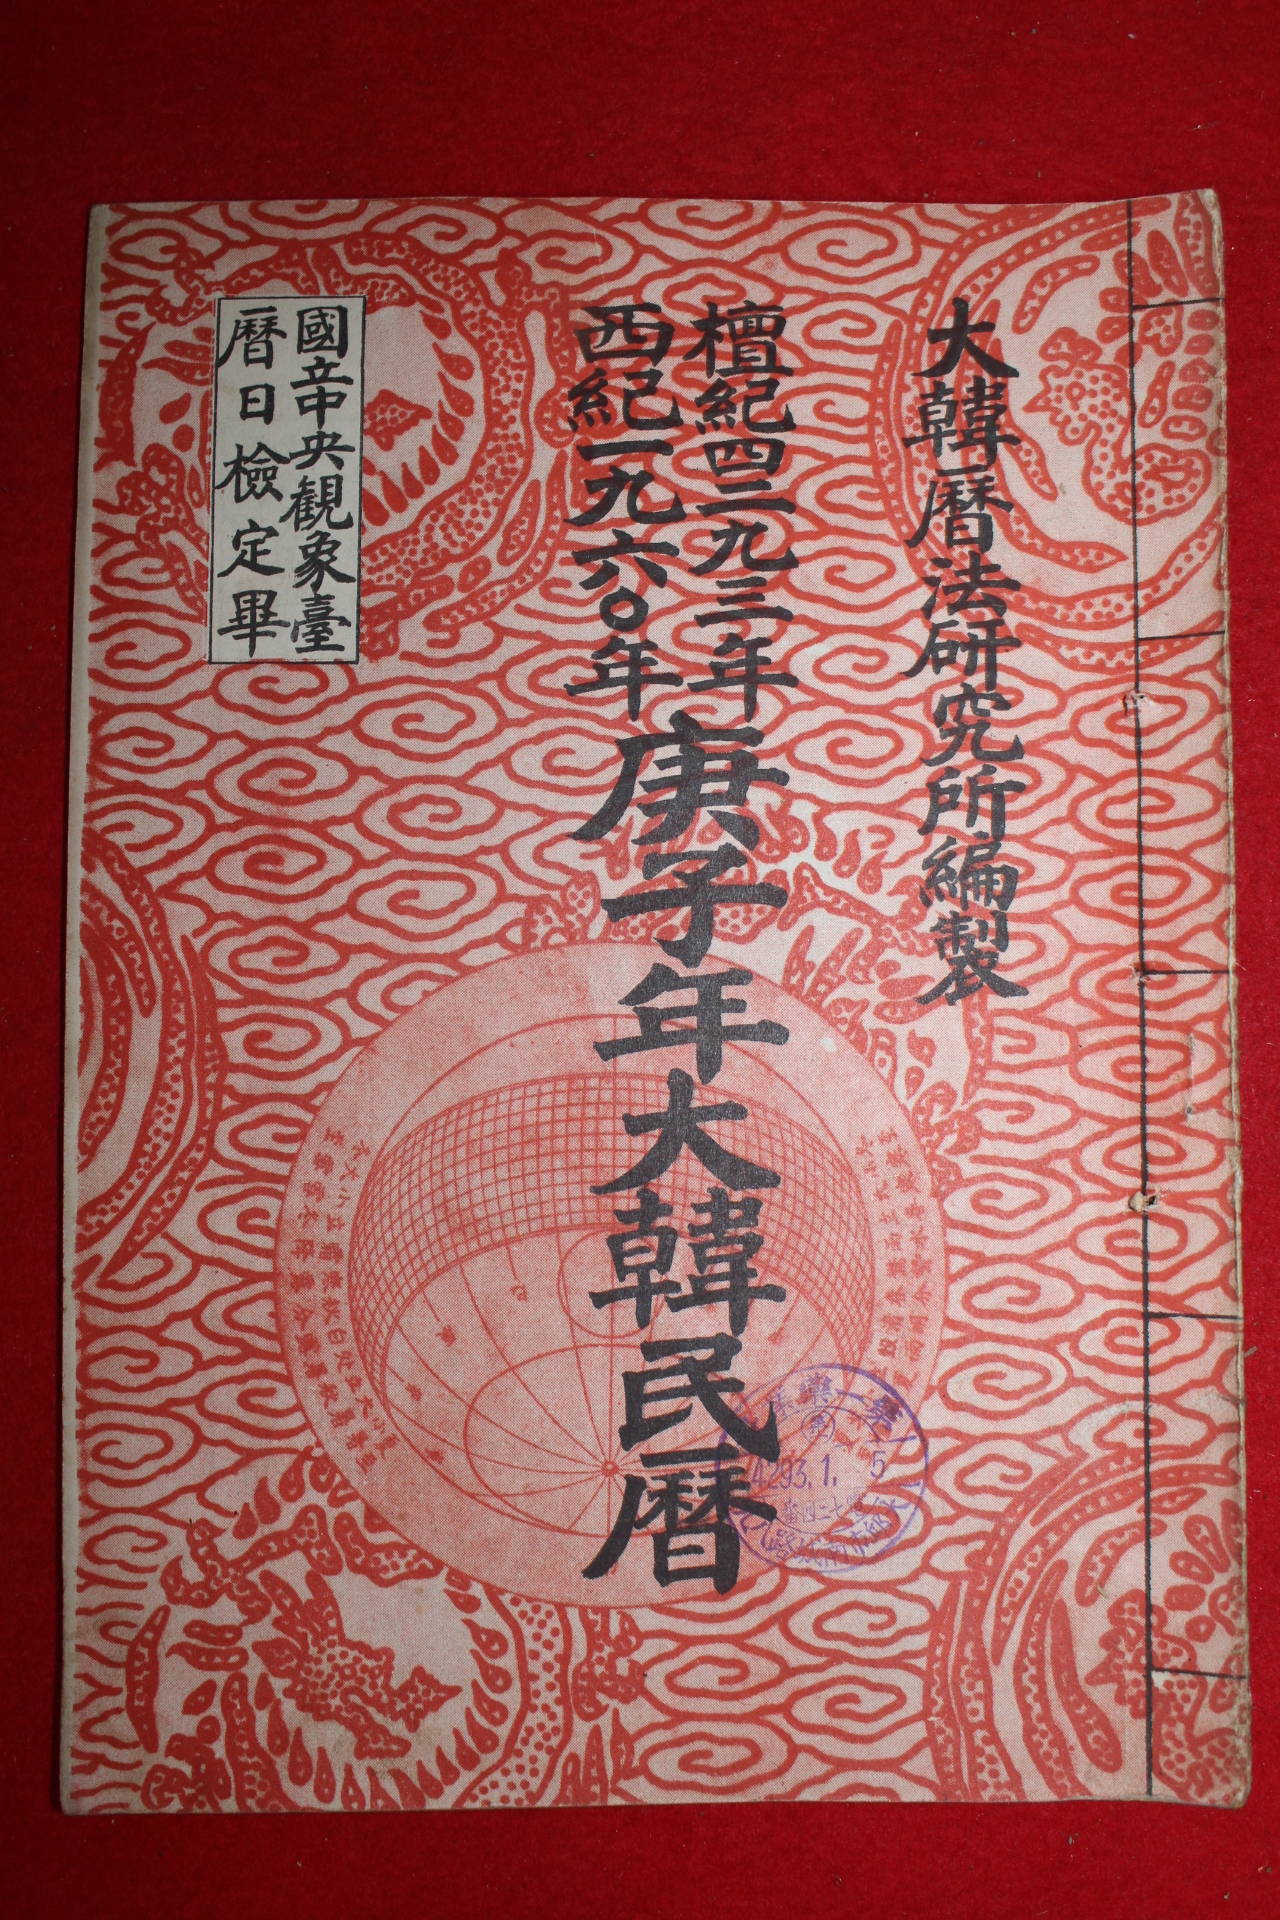 大韓曆法研究所編製
檀紀四二九三年
西紀一九六〇年
庚子年大韓民曆
國立中央觀象臺
曆日檢定畢
4293.1.5